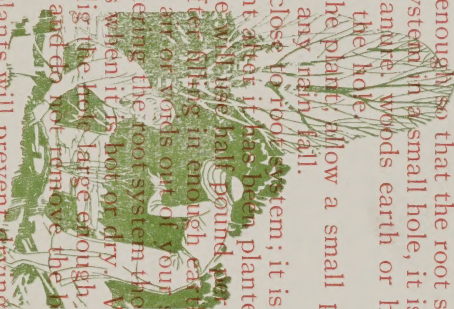 enough so that the root s
ystem in a small hole, it is
anure. Woods earth or h
the hole
he plant allow a small
any rain fall.
close to root system; it is
n after it has been plante
e will use half pound per
fter filling in enough eart
air or voids out of your s
ering the root system tho
s when it is hot or dry. W
ig the hole large enough
and do not remove the b
plants will prevent drying